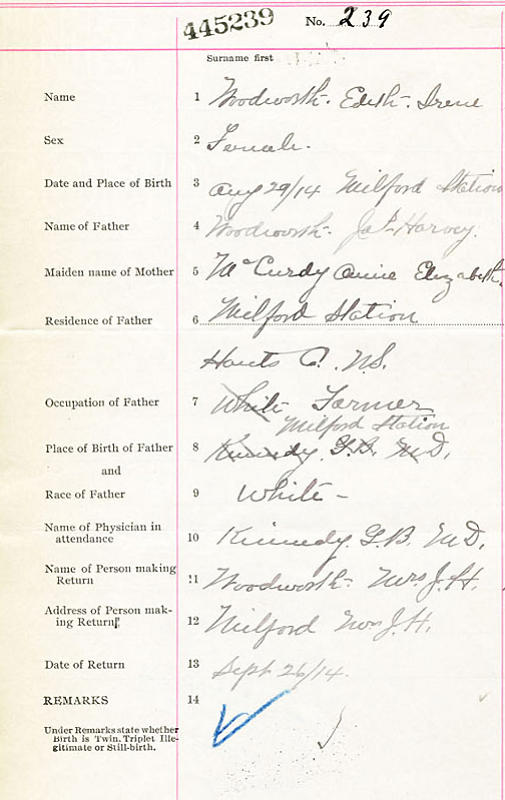 445239 No. 239
Surname first
Name 1 Woodworth. Edith. Irene
Sex 2 Female.
Date and Place of Birth 3 Aug 29/14 Milford Station
Name of Father 4 Woodworth. Jas Harvey.
Maiden name of Mother 5 McCurdy Annie Elizabeth.
Residence of Father 6 Milford Station
Hants Co. N.S.
Occupation of Father 7 White Farmer
Milford Station
Place of Birth of Father 8 Kennedy G.B. M.D.
and
Race of Father 9 White -
Name of Physician in
attendance 10 Kennedy. G.B. M.D.
Name of Person making
Return 11 Woodworth- Mrs. J.H.
Address of Person mak-
ing Return 12 Milford Mrs J.H.
Date of Return 13 Sept 26/14.
REMARKS 14
Under Remarks state whether
Birth is Twin, Triplet Ille-
gitimate or Still-birth.